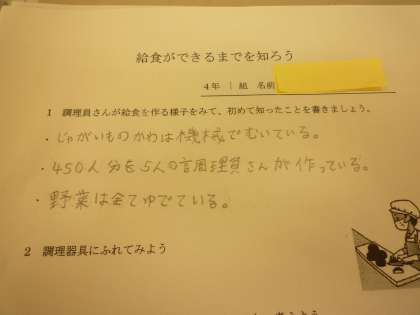 給食ができるまでを知ろう
4年 1組 名前
1 調理員さんが給食を作る様子をみて、初めて知ったことを書きましょう。
・じゃがいものかわは機械でむいている。
・450人分を5人の調理員さんが作っている。
・野菜は全てゆでている。
2 調理器具にふれてみよう